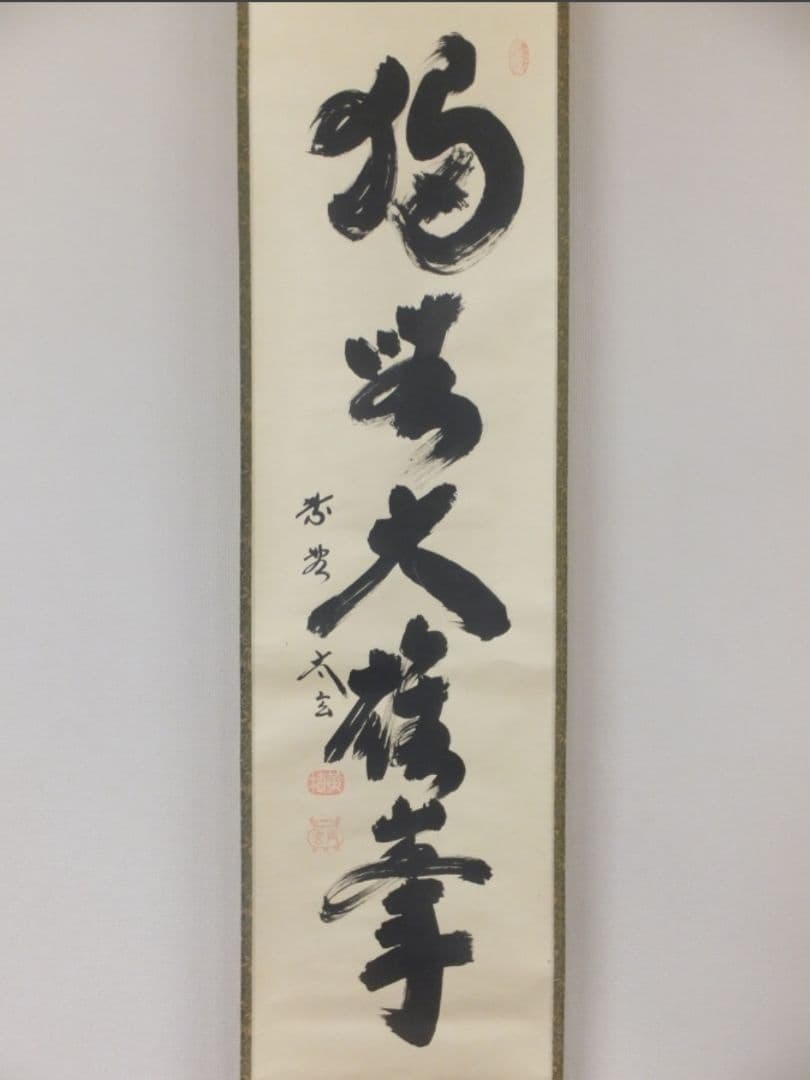 独坐大雄峯
紫野 太玄